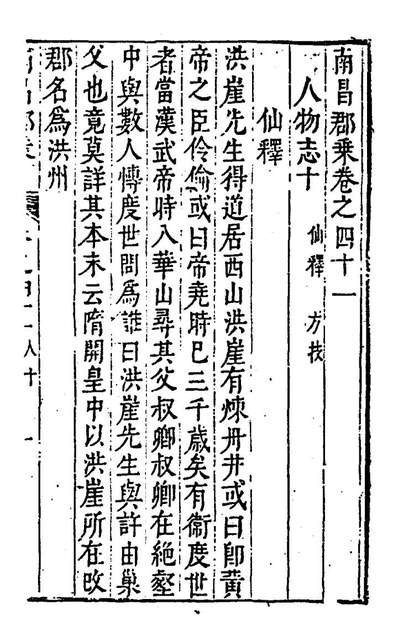 南昌郡乘卷之四十一
人物志十 仙釋 方技
仙釋
洪崖先生得道居西山洪崖有煉丹井或曰卽黃
帝之臣伶倫或曰帝堯時已三千歲矣有衞度世
者當漢武帝時入華山尋其父叔卿叔卿在絶壑
中與數人慱度世問爲誰曰洪崖先生與許由巢
父也竟莫詳其本末云隋開皇中以洪崖所在改
郡名爲洪州